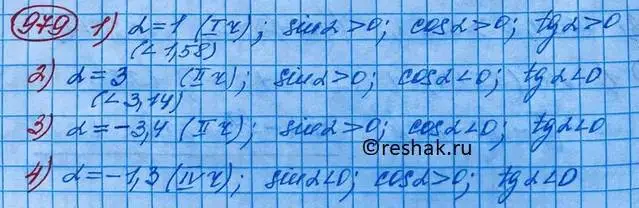 979 1) α=1 (I ч); sinα>0; cosα>0; tgα>0
(< 1,58)
2) α=3 (II ч); sinα>0; cosα<0; tgα<0
(< 3,14)
3) α=-3,4 (II ч); sinα>0; cosα<0; tgα<0
©reshak.ru
4) α=-1,3 (IV ч); sinα<0; cosα>0; tgα<0